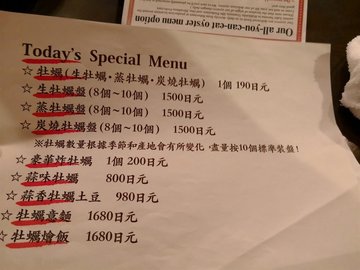 Our all-you-can-eat oyster menu option
Today's Special Menu
☆ 牡蠣(生牡蠣・蒸牡蠣・炭燒牡蠣) 1個 190日元
☆ 生牡蠣盤(8個～10個) 1500日元
☆ 蒸牡蠣盤(8個～10個) 1500日元
☆ 炭燒牡蠣盤(8個～10個) 1500日元
※牡蠣數量根據季節和產地會有所變化，盡量按10個標準裝盤!
☆ 豪華炸牡蠣 1個 200日元
☆ 蒜味牡蠣 800日元
☆ 蒜香牡蠣土豆 980日元
☆ 牡蠣意麵 1680日元
☆ 牡蠣燴飯 1680日元